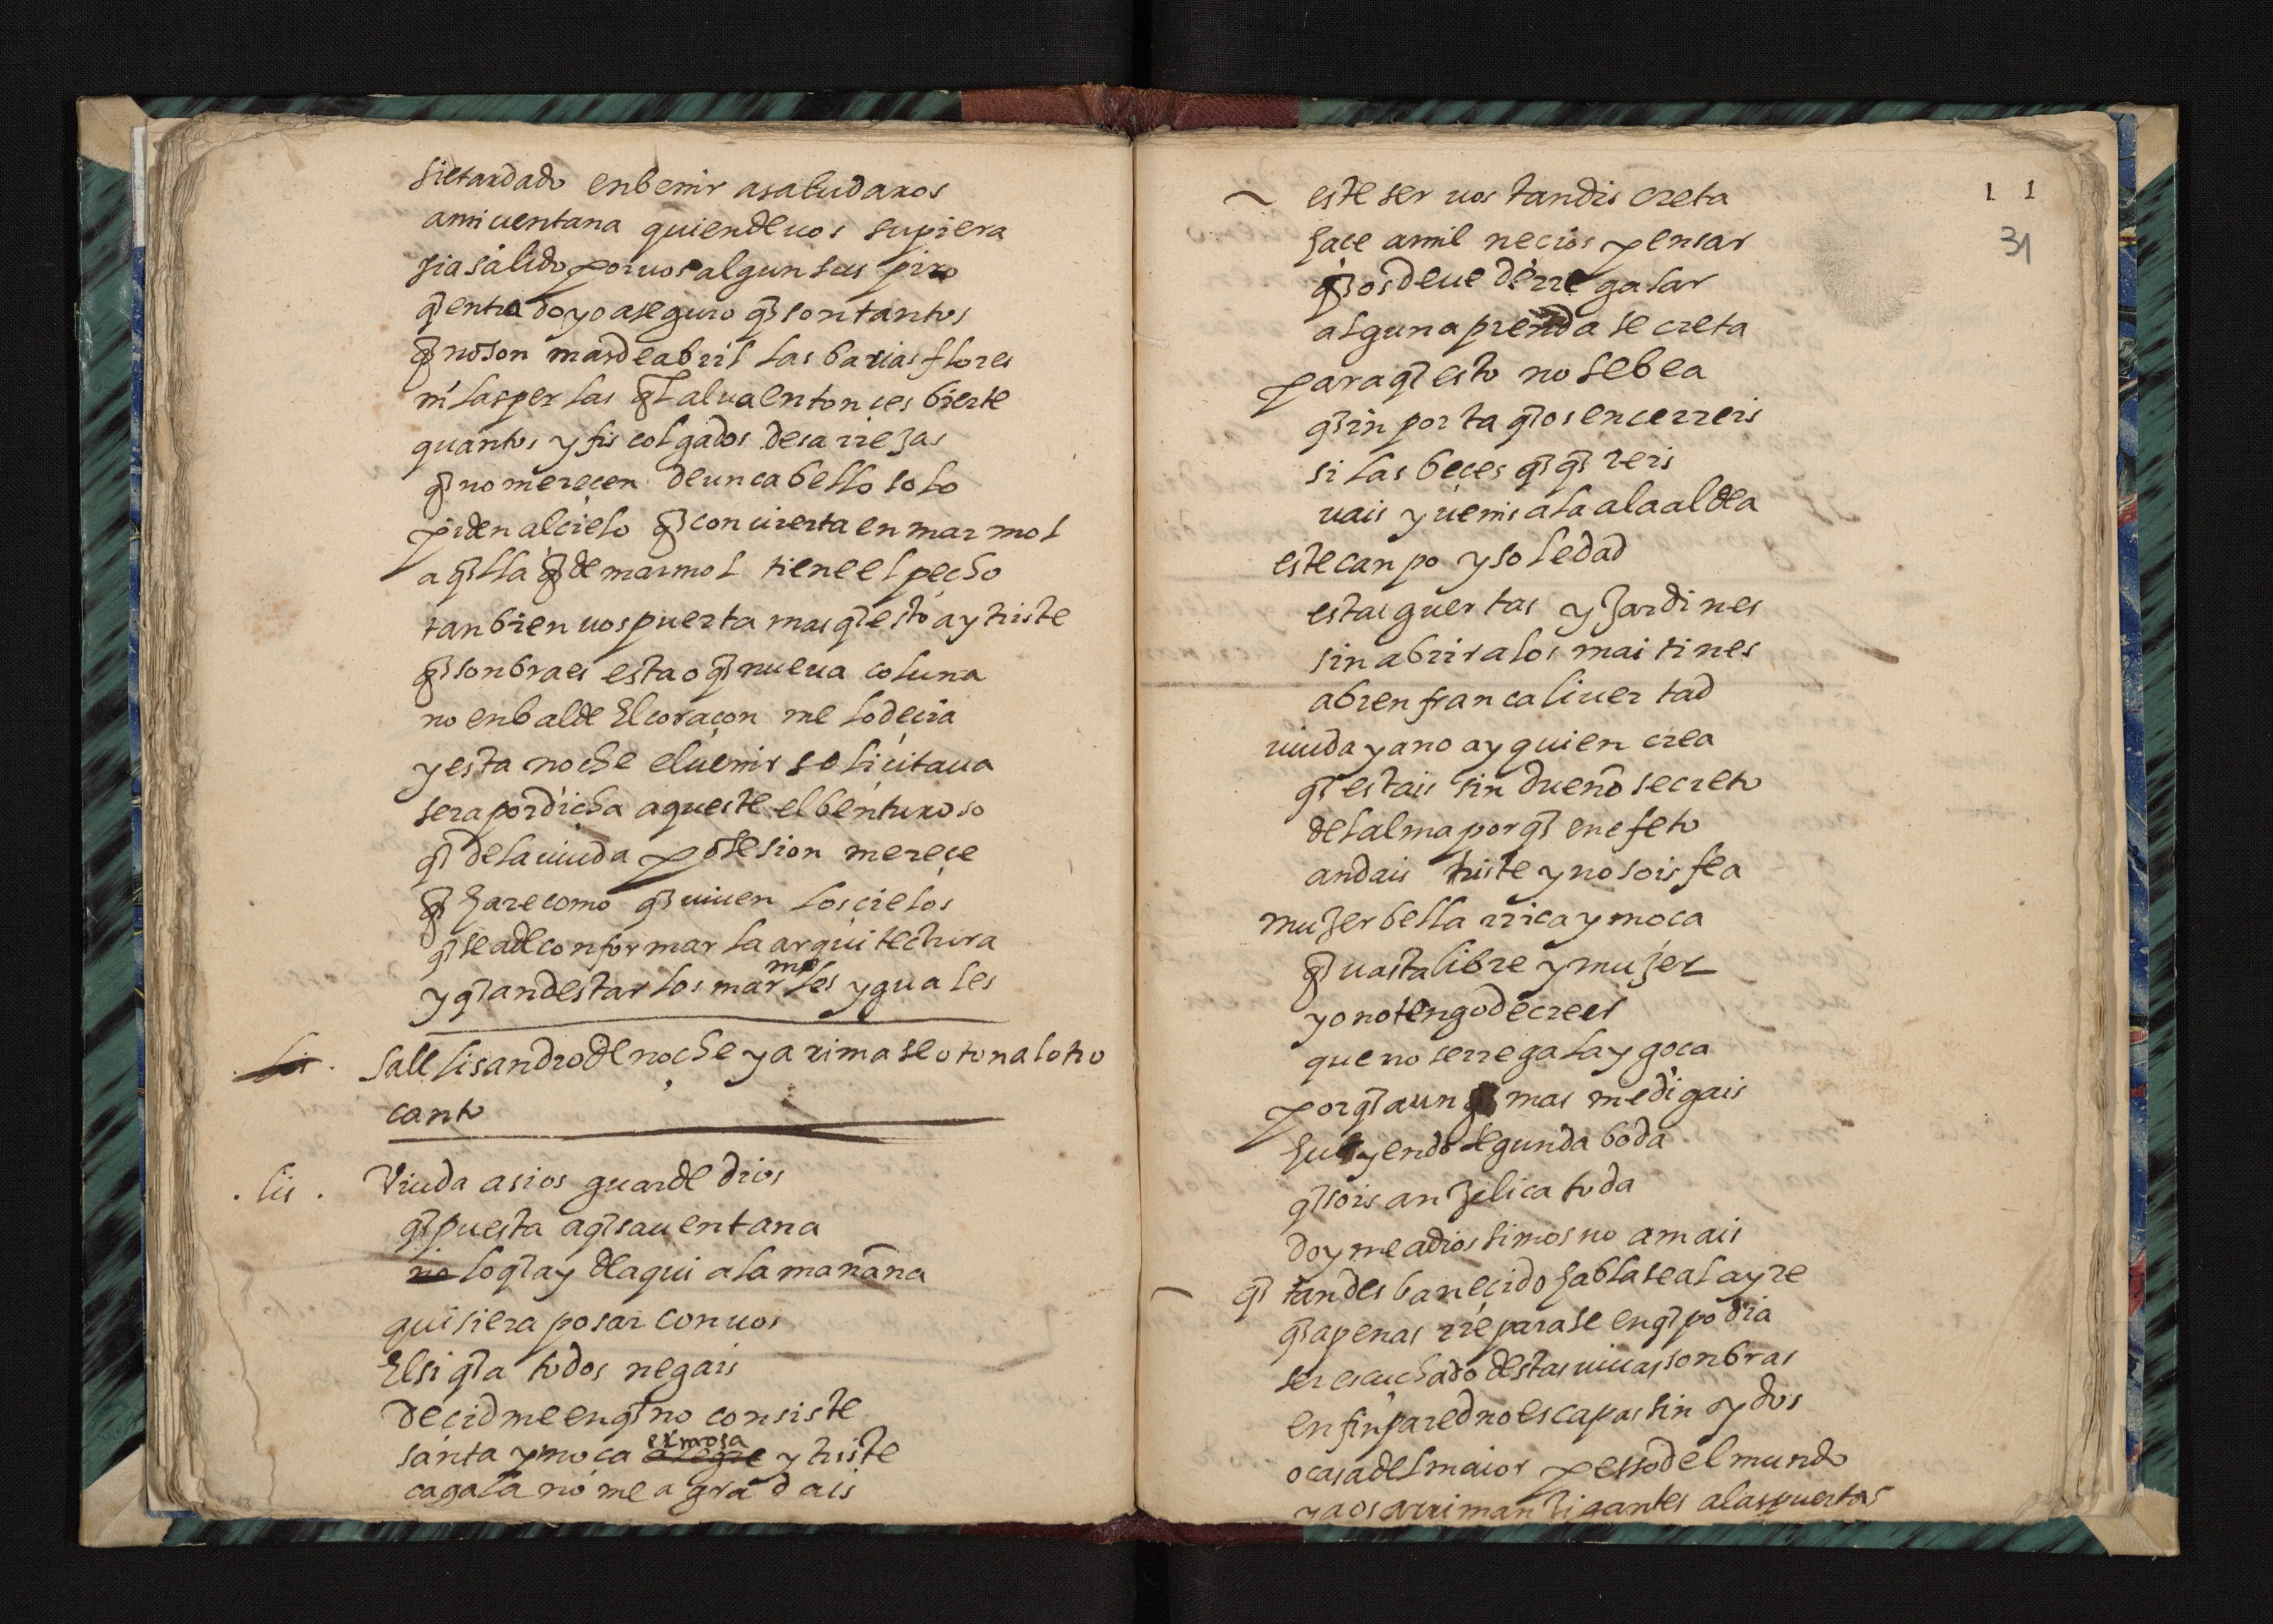 si e tardado en benir a saludaros
a mi uentana quien de uos supiera
si a salido por uos algun suspiro
q̃ entrado yo aseguro q̃ son tantos
q̃ no son mas de abril las barias flores
ni las perlas q̃l alua entonçes bierte
quantos
q̃ no mereçen de un cabello solo
piden al çielo q̃ conuierta en marmol
a q̃lla q̃ de marmol tiene el pecho
tanbien uos puerta mas q̃ esto ay triste
q̃ sonbra es esta o q̃ nueua coluna
no en balde el coraçon me lo deçia
y esta noche el uenir soliçitaua
sera por dicha aqueste el benturoso
q̃ de la uiuda posesion mereçe
q̃ hare como q̃ uiuen los çielos
q̃ se a de conformar la arquitectura
y q̃ an destar los marmoles yguales
lis. Sale lisandro de noche y arimase otro n al otro
canto
. lis . Viuda asi os guarde dios
q̃ puesta a q̃sa uentana
no lo q̃ ay de aqui a la mañana
quisiera posar con uos
El si q̃ a todos negais
deçidme en q̃ no consiste
santa y moça alegre ermosa y triste
çagala no me agradais
este ser uos tan discreta
haçe a mil neçios pensar
q̃ os deue de rregalar
alguna prenda secreta
para q̃ esto no se bea
q̃ inporta q̃ os encerreis
si las beçes q̃ q̃reis
uais y uenis a la ala aldea
este canpo y soledad
estas guertas y jardines
sin abrir a los maitines
abren franca liuertad
uiuda ya no ay quien crea
q̃ estais sin dueño secreto
del alma por q̃ en efeto
andais triste y no sois fea
mujer bella rrica y moça
q̃ uasta libre y mujer
yo no tengo de creer
que no se rregala y goça
por q̃ aun q̃ mas me digais
huyendo segunda boda
q̃ sois anjelica toda
doyme a dios si mos no amais
q̃ tan desbaneçido hablase al ayre
q̃ apenas rreparase en q̃ podia
ser escuchado destas uiuas sonbras
en fin pared no escapas sin oydos
o casa del maior peso del mundo
ya os arriman jigantes a las puertas
1 1
31